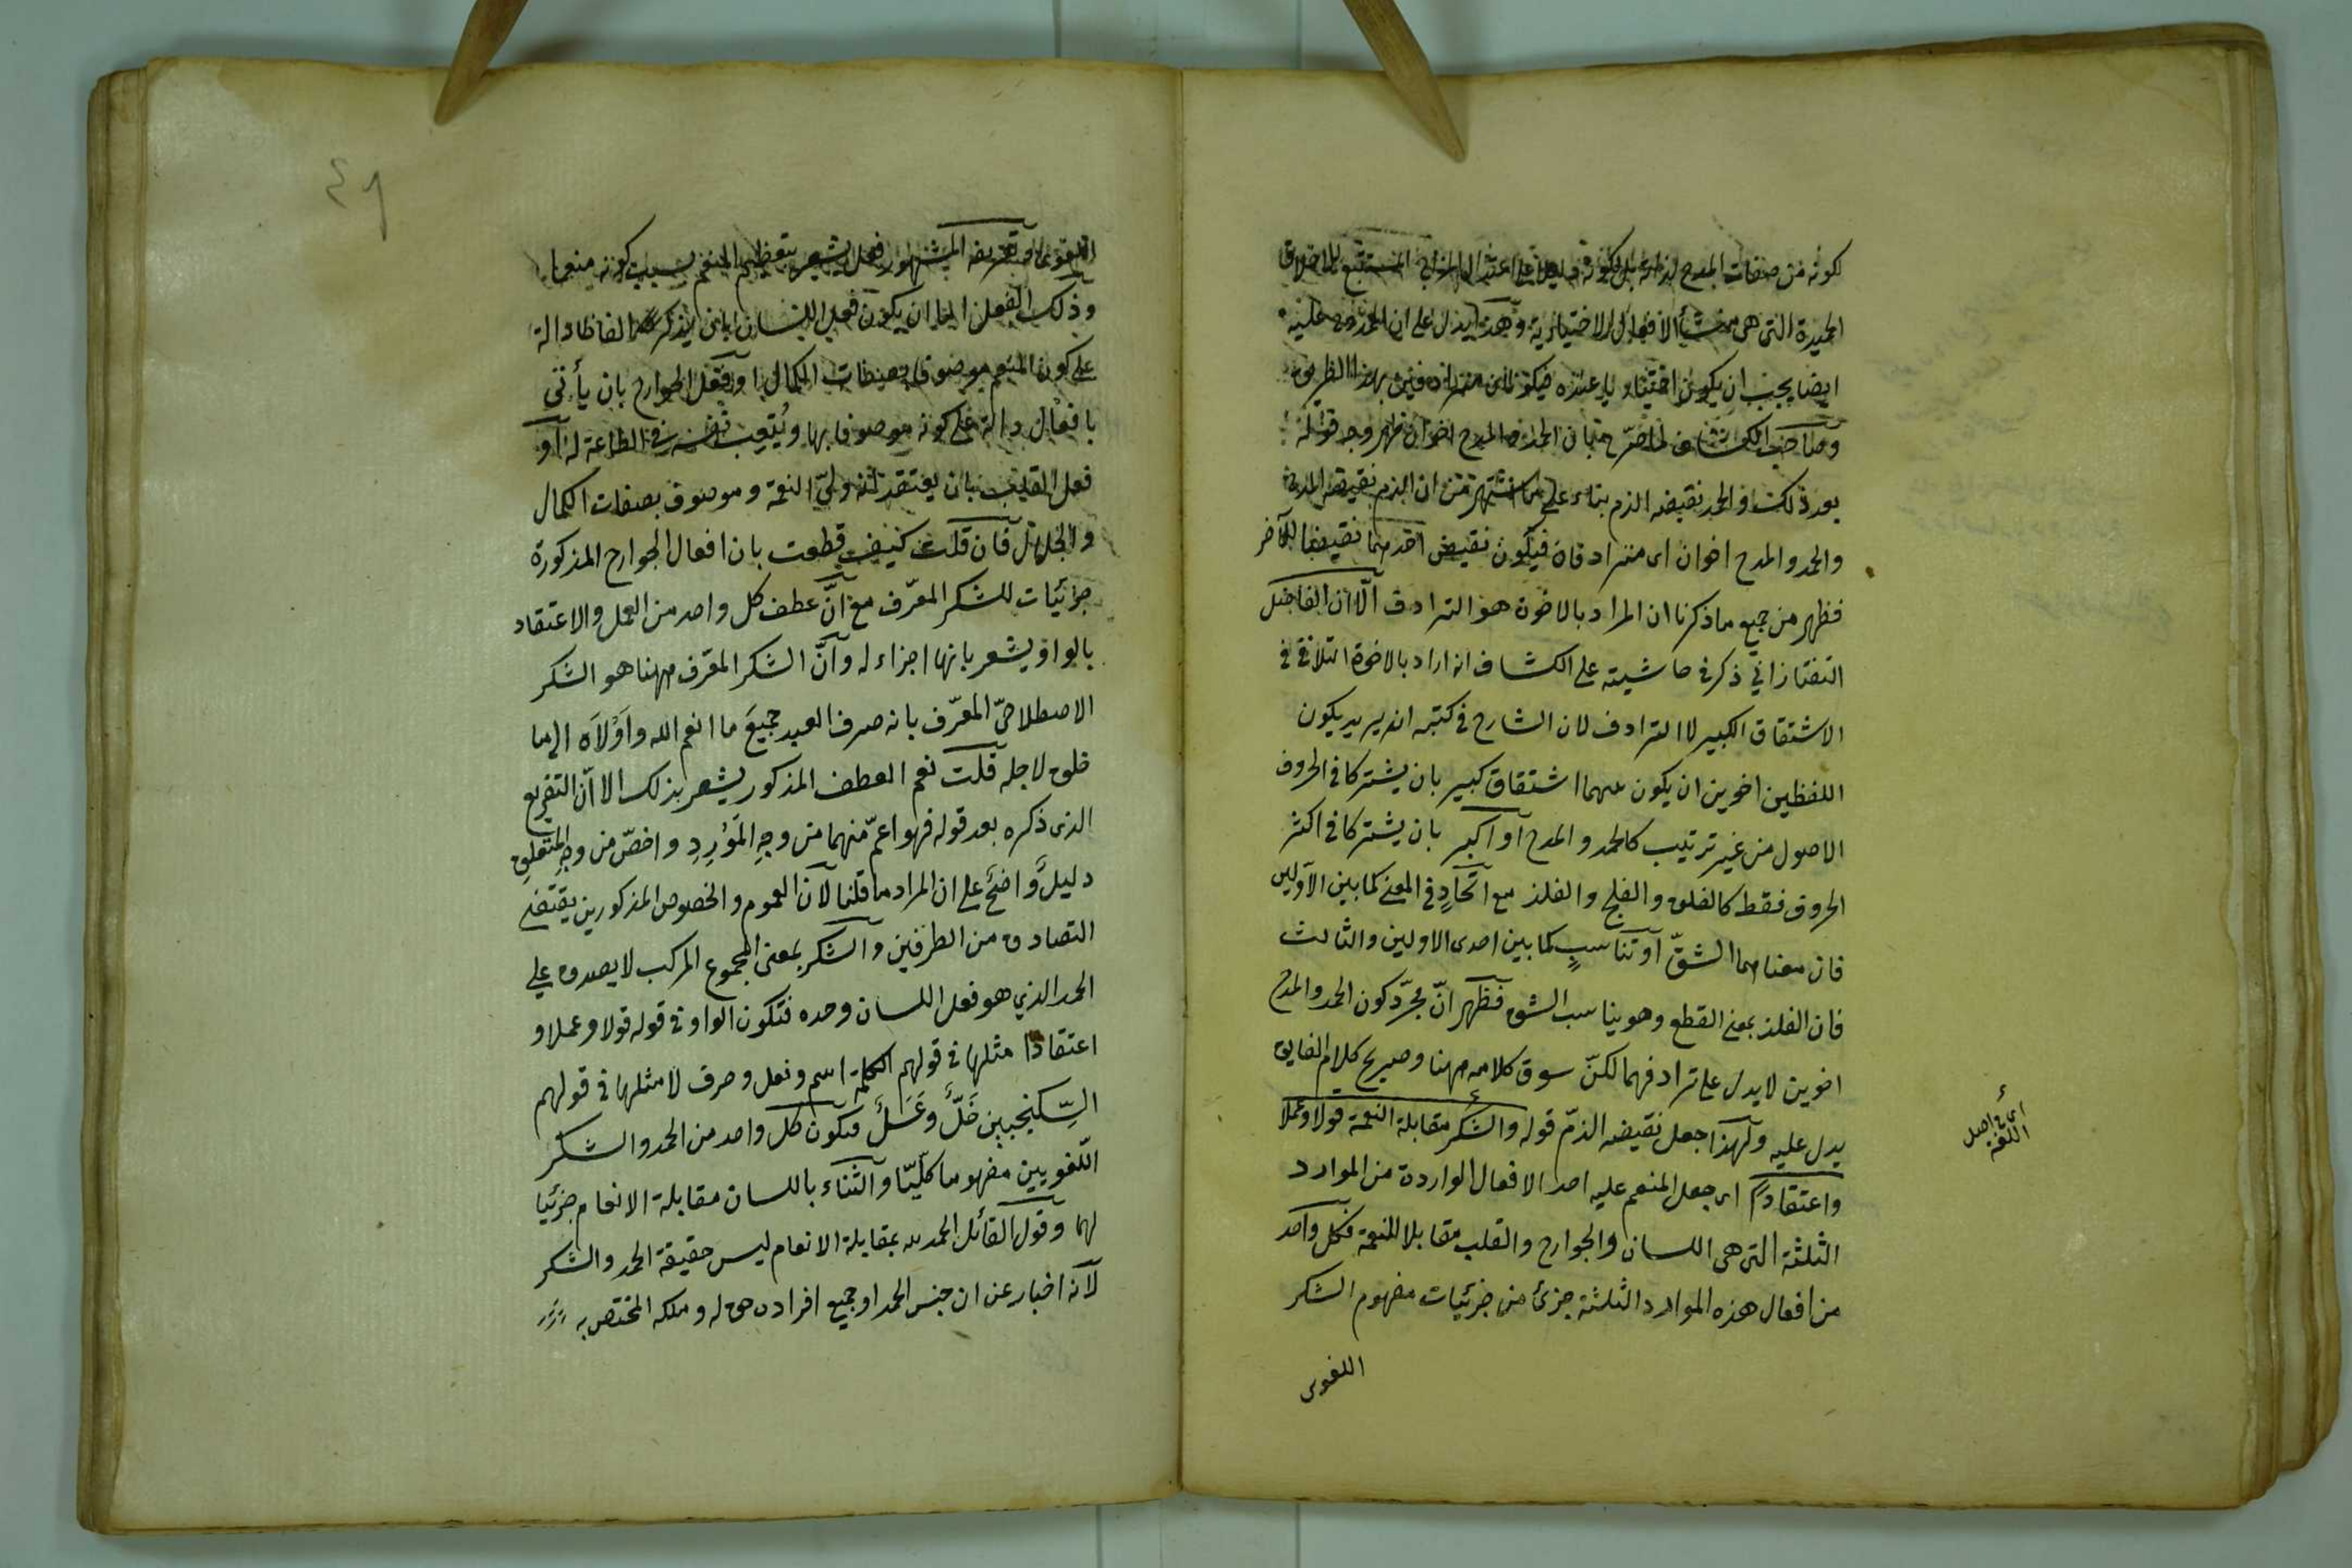 لكونه من صفات المدح لذاته بل لكونه
الحميدة التى هى منشأ الافعال الاختيارية وهذا يدل على ان المحمود عليه
ايضا يجب ان يكون اختياريا عنده فيكونان مترادفين بهذا الطريق
وصاحب الكشاف لما صرّح بان الحمد والمدح اخوان ظهر وجه قوله
بعد ذلك والحمد نقيضه الذم بناء على ما اشتهر من ان الذم نقيض المدح
والحمد والمدح اخوان اى مترادفان فيكون نقيض احدهما نقيضا للآخر
فظهر من جميع ما ذكرنا ان المراد بالاخوة هو الترادف الّا ان الفاضل
التفتازاني ذكر في حاشيته على الكشاف انه اراد بالاخوة التلاقي في
الاشتقاق الكبير لا الترادف لان الشارح في كتبه انه يريد بكون
اللفظين اخوين ان يكون بينهما اشتقاق كبير بان يشتركا في الحروف
الاصول من غير ترتيب كالحمد والمدح او اكبر بان يشتركا في اكثر
الحروف فقط كالفلق والفلج والفلذ مع اتّحادٍ في المعنى كما بين الاوّلين
فان معناهما الشقّ او تناسبٍ كما بين احدى الاولين والثالث
فان الفلذ بمعنى القطع وهو يناسب الشق فظهر انّ مجرّد كون الحمد والمدح
اخوين لا يدل على ترادفهما لكنّ سوق كلامه ههنا وصريح كلام الفايق
يدل عليه ولهذا جعل نقيضه الذمّ قوله والشكر مقابلة النعمة قولا وعملا
واعتقاداً اى جعل المنعم عليه احد الافعال الواردة من الموارد
الثلثة التى هى اللسان والجوارح والقلب مقابلا للنعمة فكل واحد
من افعال هذه الموارد الثلثة جزئ من جزئيات مفهوم الشكر
اللغوى
اى في اصل
اللغة
٤٩
اللغوى او تعريفه المشهور فعل يشعر بتعظيم المنعم بسبب كونه منعما
وذلك الفعل اما ان يكون فعل اللسان بان يذكر الفاظا دالة
على كون المنعم موصوفا بصفات الكمال او فعل الجوارح بان يأتى
بافعال دالة على كونه موصوفا بها ويُتعب نفسه في الطاعة له او
فعل القلب بان يعتقد انه ولىّ النعمة وموصوف بصفات الكمال
والجلال فان قلت كيف قطعت بان افعال الجوارح المذكورة
جزئيّات للشكر المعرّف مع انّ عطف كل واحد من العمل والاعتقاد
بالواو يشعر بانها اجزاء له وانّ الشكر المعرّف ههنا هو الشكر
الاصطلاحىّ المعرّف بانه صرف العبد جميعَ ما انعم الله واَوْلاَه الى ما
خلق لاجله قلت نعم العطف المذكور يشعر بذلك الا انّ التفريع
الذى ذكره بعد قوله فهو اعمّ منهما من وجهِ المَوْرِدِ واخصّ من وجهِ المتعلقِ
دليلٌ واضحٌ على ان المراد ما قلنا لان العموم والخصوص المذكورين يقتضى
التصادق من الطرفين والشكر بمعنى المجموع المركب لا يصدق على
الحمد الذي هو فعل اللسان وحده فتكون الواو في قوله قولا وعملا و
اعتقادا مثلها في قولهم الكلمة اسم وفعل وحرف لا مثلها في قولهم
السِّكنجبين خَلٌّ وعَسَلٌ فيكون كل واحد من الحمد والشكر
اللّغويين مفهوما كلّيّا والثناء باللسان مقابلة الانعام جزئيا
لهما وقول القائل الحمد لله بمقابلة الانعام ليس حقيقة الحمد والشكر
لانه اخبار عن ان جنس الحمد او جميع افراده حق له وملكه المختص به